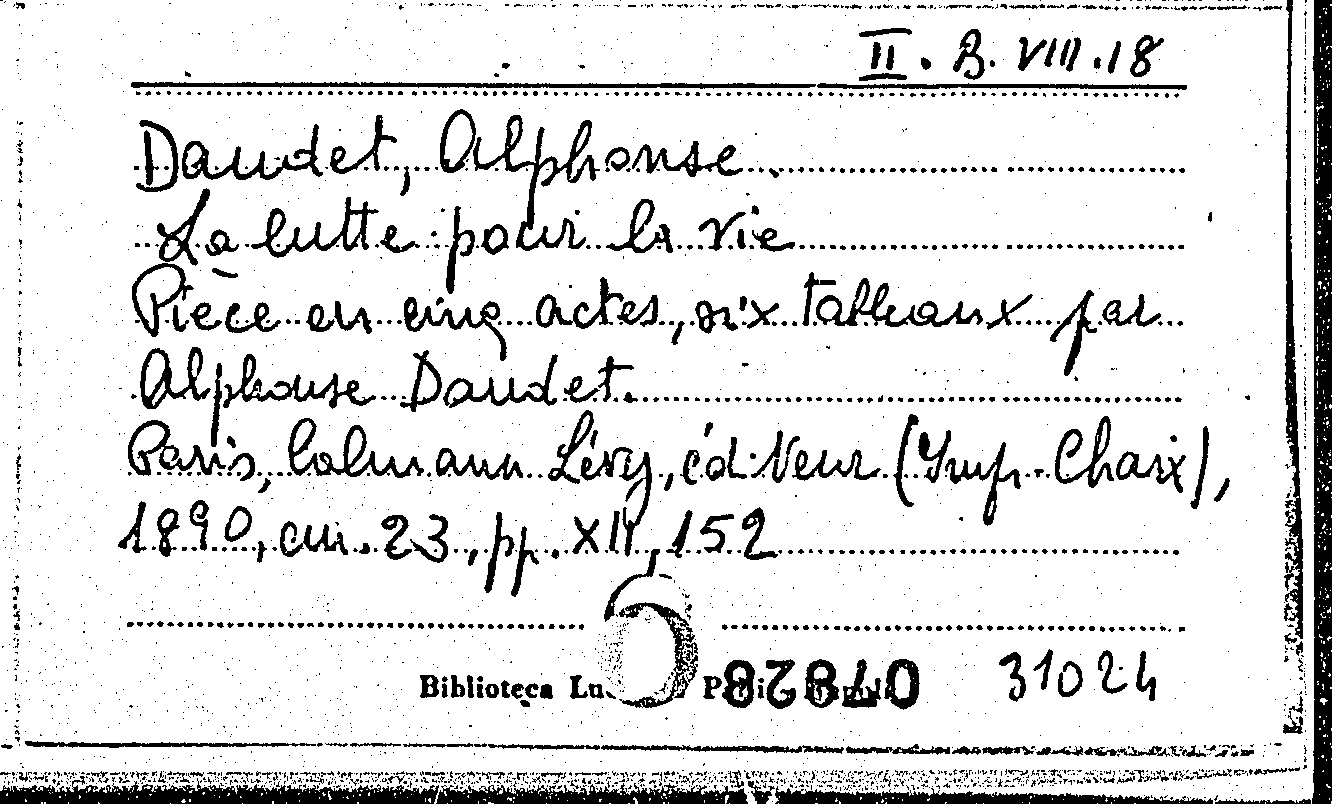 II. B. VIII. 18
Daudet, Alphonse.
La lutte pour la vie
Pièce en cinq actes, six tableaux par
Alphonse Daudet.
Paris, Calmann Lévy, éditeur (Imp. Chaix),
1890, cm. 23, pp. XII, 152
Biblioteca
07828
31024